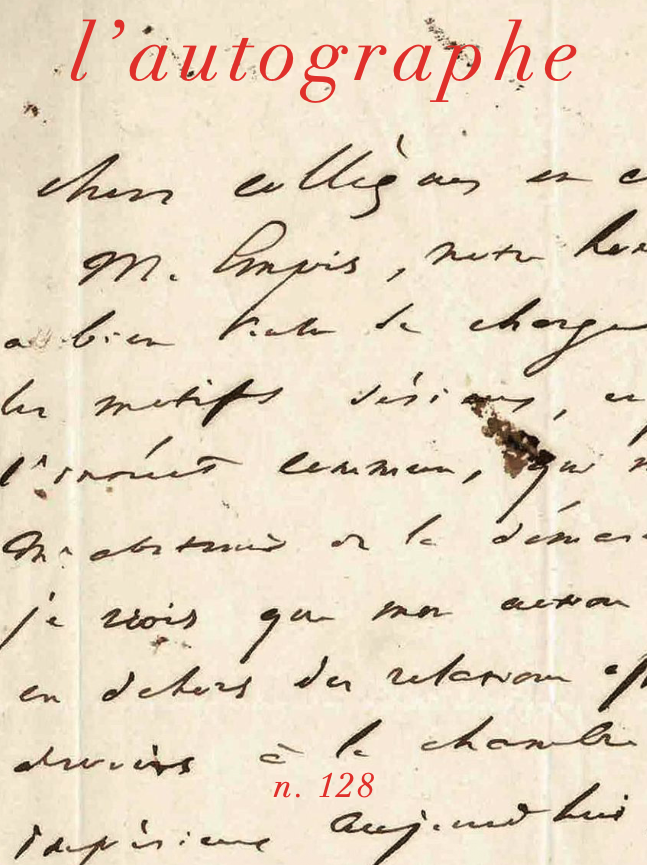 l'autographe
chers collègues en
M. Empis, notre
a bien voulu se charger
les motifs sérieux,
l'intérêt commun, que
m'abstenir de la
je crois que mon action
en dehors des relations
à la chambre
n. 128
aujourd'hui